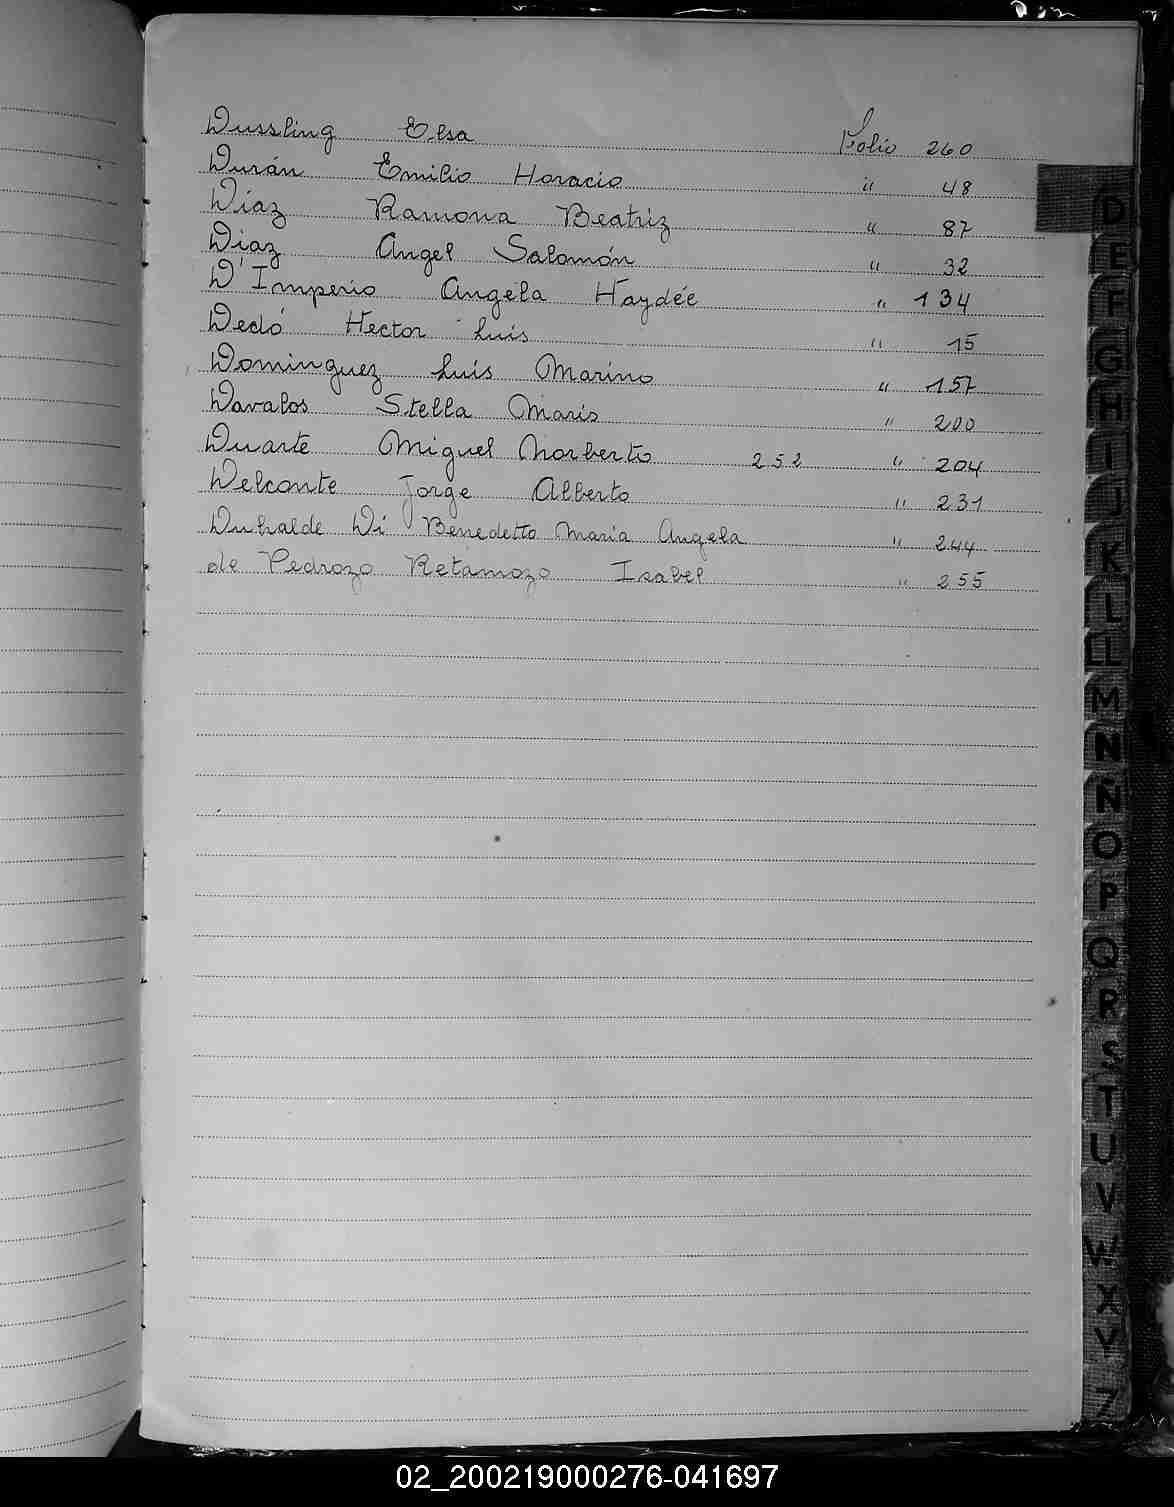 Dussling Elsa Folio 260
Durán Emilio Horacio " 48
Díaz Ramona Beatriz " 87
Diaz Angel Salomón " 32
D'Imperio Angela Haydée " 134
Dedó Hector Luis " 15
Dominguez Luis Marino " 157
Davalos Stella Maris " 200
Duarte Miguel Norberto 252 " 204
Delconte Jorge Alberto " 231
Duhalde Di Benedetto Maria Angela " 244
de Pedrozo Retamozo Isabel " 255
D
E
F
G
H
I
J
K
L
LL
M
N
Ñ
O
P
Q
R
S
T
U
V
W
X
Y
Z
02_200219000276-041697